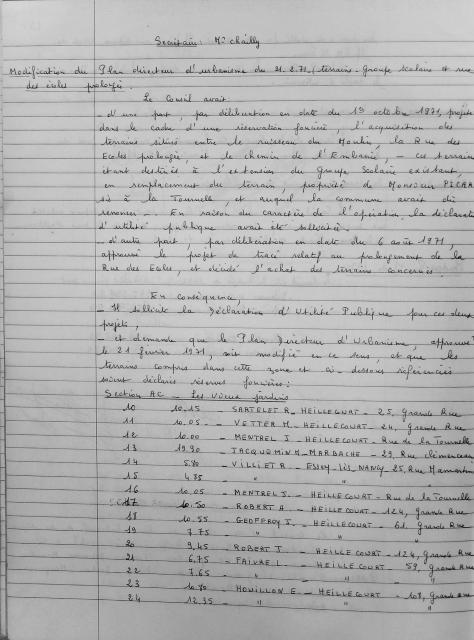 Secrétaire: Mr Chailly
Modification du Plan directeur d'urbanisme du 21.2.71 (terrains - Groupe scolaire et rue
des écoles prolongée.
Le Conseil avait
- d'une part, par délibération en date du 19 octobre 1971, projeté
dans le cadre d'une réservation foncière, l'acquisition des
terrains situés entre le ruisseau du Moulin, la Rue des
Ecoles prolongée, et le chemin de l'Embanie, - ces terrains
étant destinés à l'extension du Groupe Scolaire existant,
en remplacement du terrain, propriété de Monsieur PICAR
sis à la Tournelle, et auquel la commune avait dû
renoncer -. En raison du caractère de l'opération, la déclaration
d'utilité publique avait été sollicitée.
- d'autre part, par délibération en date du 6 août 1971,
approuvé le projet de tracé relatif au prolongement de la
Rue des Ecoles, et décidé l'achat des terrains concernés.
En conséquence,
- Il sollicite la Déclaration d'Utilité Publique pour ces deux
projets,
- et demande que le Plan Directeur d'Urbanisme, approuvé
le 21 février 1971, soit modifié en ce sens, et que les
terrains compris dans cette zone et ci-dessous référenciés
soient déclarés réserves foncières:
Section AC - Les Vieux jardins
10 10.15 - SARTELET R. HEILLECOURT - 25, Grande Rue
11 10.05 - VETTER M. HEILLECOURT - 24, Grande Rue
12 10.00 - MENTREL J - HEILLECOURT - Rue de la Tournelle
13 19.90 - JACQUEMIN M - MARBACHE - 29, Rue Clemenceau
14 5.80 - VILLIET R - ESSEY-lès-NANCY - 25, Rue
15 4.85 - " "
16 10.05 - MENTREL J. - HEILLECOURT - Rue de la Tournelle
17 10.50 - ROBERT A - HEILLECOURT - 124, Grande Rue
18 10.55 - GEOFFROY J. - HEILLECOURT - 61, Grande Rue
19 7.75 " "
20 9,45 - ROBERT J - HEILLECOURT - 124, Grande Rue
21 6,75 - FAIVRE L. - HEILLECOURT - 59, Grande Rue
22 7.65 - " "
23 10.70 - HOUILLON E - HEILLECOURT - 109, Grande Rue
24 12.35 - " "